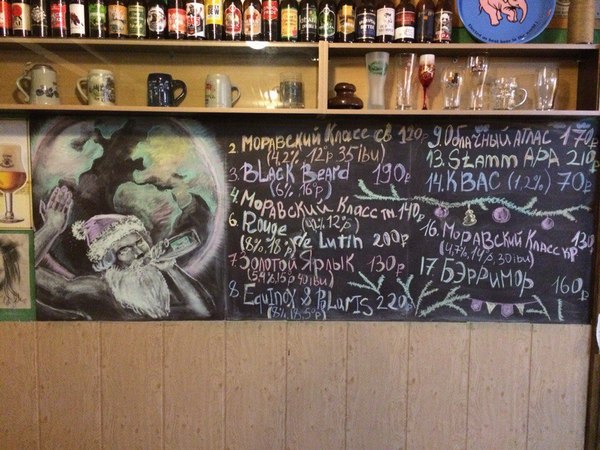 2. Моравский Класс св 120р
(4,2% 12°p 35ibu)
3. BLACK Beard 190р
(6% 16°p)
4. Моравский Класс тм 140р
(4,1% 12°p)
6. Rouge de Lutin 200р
(8% 18°p
7. Золотой Ярлык 130р
8. EquinoX 8 PLaMS 220р
9. Облачный атлас 170р
13. Stamm APA 210р
14. КВАС (1,2%) 70р
16. Моравский Класс кр 130р
(4,7% 14°p, 30ibu)
17. Бэрримор 160р